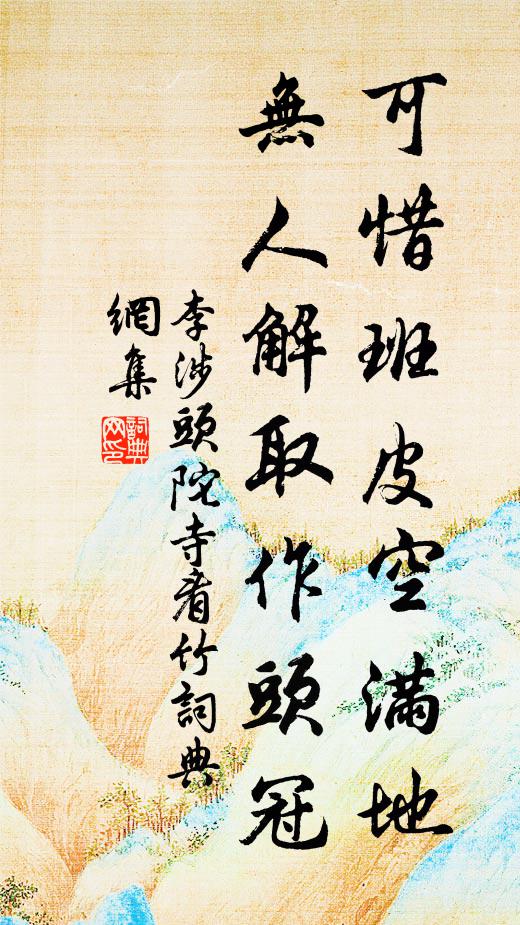 可惜班皮空滿地
無人解取作頭冠
李涉頭陀寺看竹詞典
網集
詞典
网印